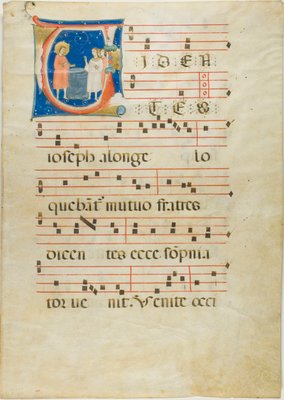 VIDEN
TES
ioseph alonge lo
quebāt mutuo fratres
dicen tes ecce sōpnia
tor ue nit. Venite occi